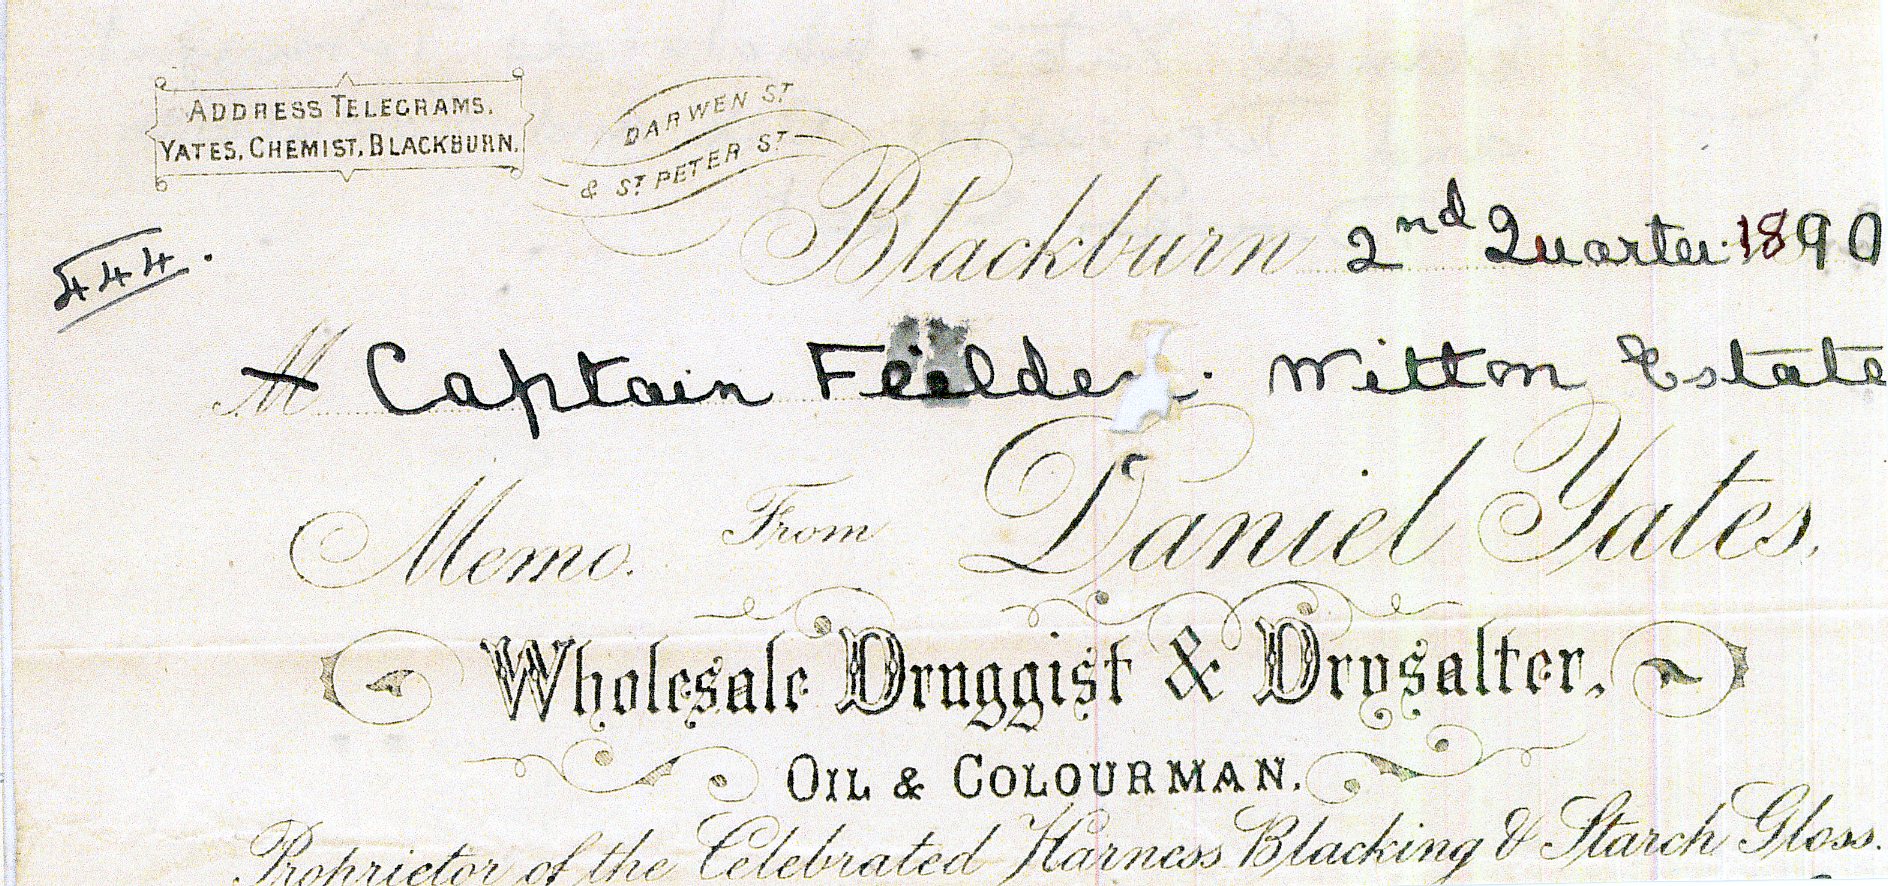 ADDRESS TELEGRAMS.
YATES, CHEMIST, BLACKBURN.
DARWEN ST
& ST PETER ST
Blackburn 2nd Quarter 1890
444.
M Captain Feilden. Witton Estate
Memo. From Daniel Yates,
Wholesale Druggist & Drysalter,
OIL & COLOURMAN.
Proprietor of the Celebrated Harness Blacking & Starch Gloss.